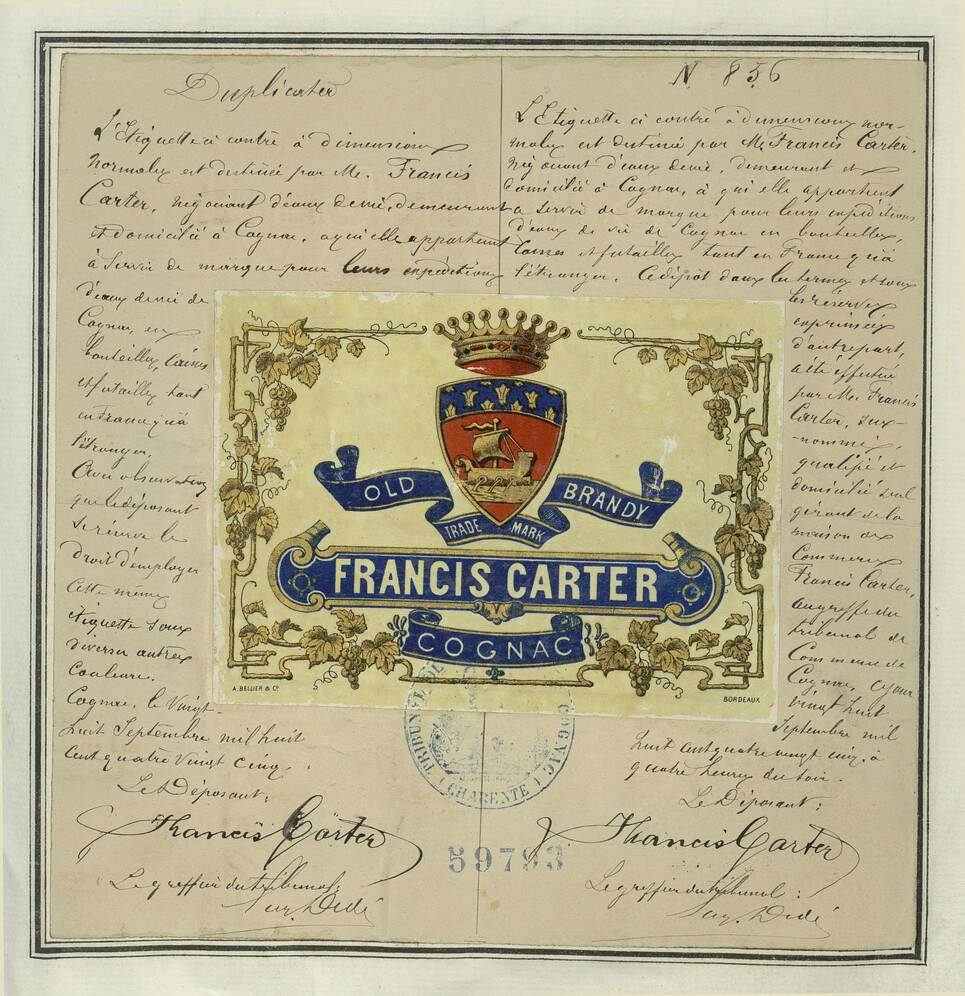 Duplicata
L'Etiquette ci contre à dimensions
normales est destinée par Mr. Francis
Carter, négociant d'eaux de vie, demeurant
et domicilié à Cognac, a qui elle appartient
à servir de marque pour leurs expéditions
d'eaux de vie de
Cognac, en
bouteilles, caisses
et futailles tant
en France qu'à
l'étranger.
Avec observation
que le déposant
se réserve le
droit d'employer
cette même
étiquette sous
diverses autres
couleurs.
Cognac, le Vingt-
huit Septembre mil huit
cent quatre vingt cinq.
Le Déposant:
Francis Carter
Le greffier du tribunal:
N. 856
L'Etiquette ci contre à dimensions nor-
males est destinée par Mr Francis Carter,
négociant d'eaux de vie, demeurant et
domicilié à Cognac, à qui elle appartient
a servir de marque pour leurs expéditions
d'eaux de vie de Cognac en bouteilles,
caisses et futailles tant en France qu'à
l'étranger. Ce dépôt dans les termes et sous
les réserves
exprimées
d'autre part,
a été effectué
par Mr. Francis
Carter, sus-
-nommé,
qualifié et
domicilié seul
gérant de la
maison de
Commerce
Francis Carter,
au greffe du
tribunal de
Commerce de
Cognac, ce jour
vingt huit
Septembre mil
huit cent quatre vingt cinq, à
quatre heures du soir.
Le Déposant:
Francis Carter
Le greffier du tribunal:
OLD BRANDY
TRADE MARK
FRANCIS CARTER
COGNAC
A. BELLIER & Cº
BORDEAUX
TRIBUNAL DE COGNAC
(CHARENTE)
59793